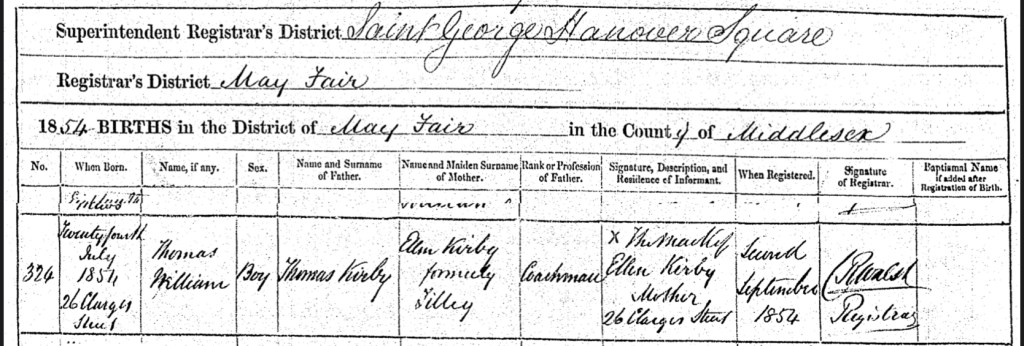 Superintendent Registrar's District Saint George Hanover Square
Registrar's District May Fair
1854 BIRTHS in the District of May Fair in the County of Middlesex
No. When Born. Name, if any. Sex. Name and Surname of Father. Name and Maiden Surname of Mother. Rank or Profession of Father. Signature, Description, and Residence of Informant. When Registered. Signature of Registrar. Baptismal Name if added after Registration of Birth.
324
Twenty fourth
July
1854
26 Clarges
Street
Thomas
William
Boy
Thomas Kirby
Ellen Kirby
formerly
Tilley
Coachman
X The mark of
Ellen Kirby
Mother
26 Clarges Street
Second
September
1854
Registrar